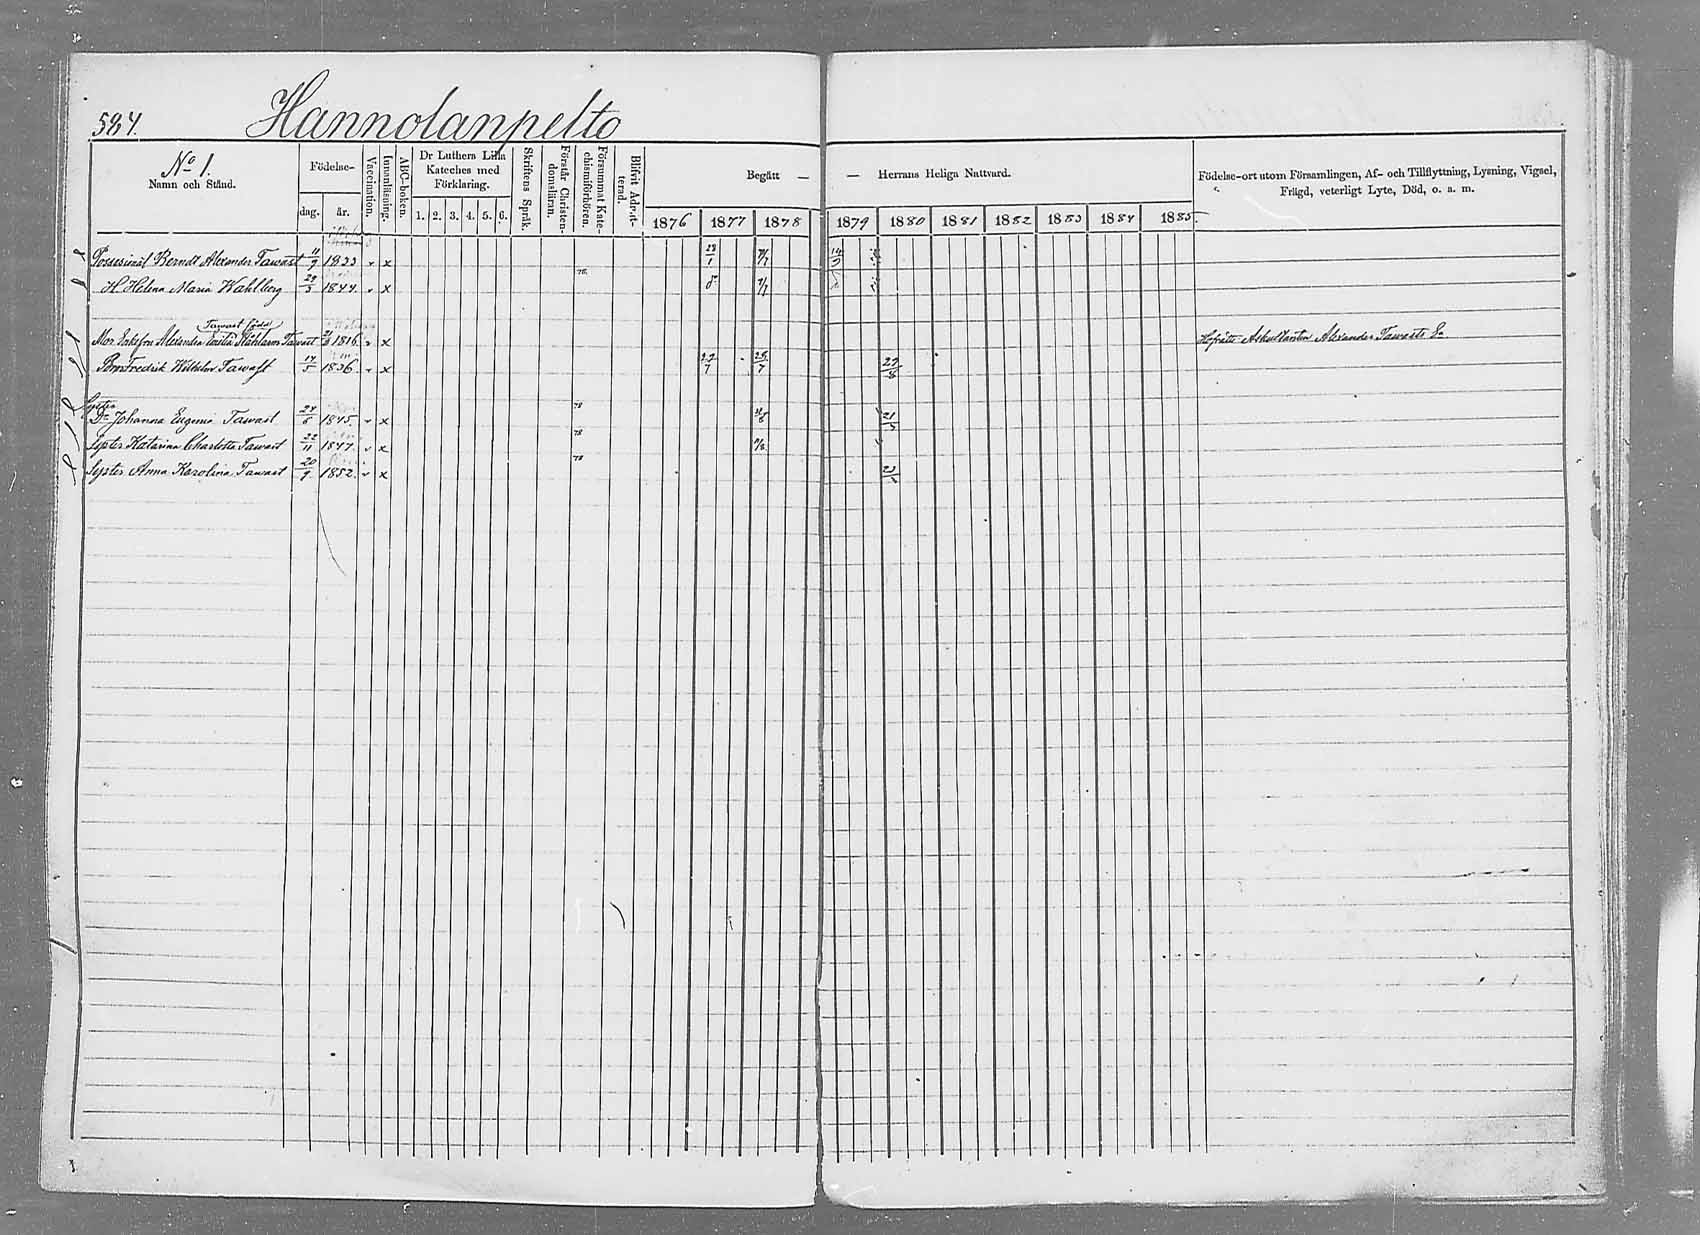 584.
Hannolanpelto
No 1.
Namn och Stånd.
Födelse-
dag.
år.
Vaccination.
Innanläsning.
ABC-boken.
Dr Luthers Lilla
Kateches med
Förklaring.
1. 2. 3. 4. 5. 6.
Skriftens Språk.
Förstår Christen-
domsläran.
Försummat Kate-
chismiförhören.
Blifvit Admit-
terad.
Begått —
— Herrans Heliga Nattvard.
1876 1877 1878 1879 1880 1881 1882 1883 1884 1885
Födelse-ort utom Församlingen, Af- och Tillflyttning, Lysning, Vigsel,
Frägd, veterligt Lyte, Död, o. a. m.
Possesinat Berndt Alexander Tawast 11/9 1833 x 28/1
H. Helena Maria Wahlberg 29/3 1844. x 78.
Tawast född
Mor Enkefru Alexandra Emilia Stählarm Tawast 1816. x Hofrätts Auskultanten Alexander Tawasts E.
Bror Fredrik Wilhelm Tawast 17/5 1836 x 22/7 25/7 29/8
Syster
Dr Johanna Eugenia Tawast 24/6 1845. x 78
Syster Katarina Charlotta Tawast 22/11 1847. x 78
Syster Anna Karolina Tawast 20/9 1852. x 78